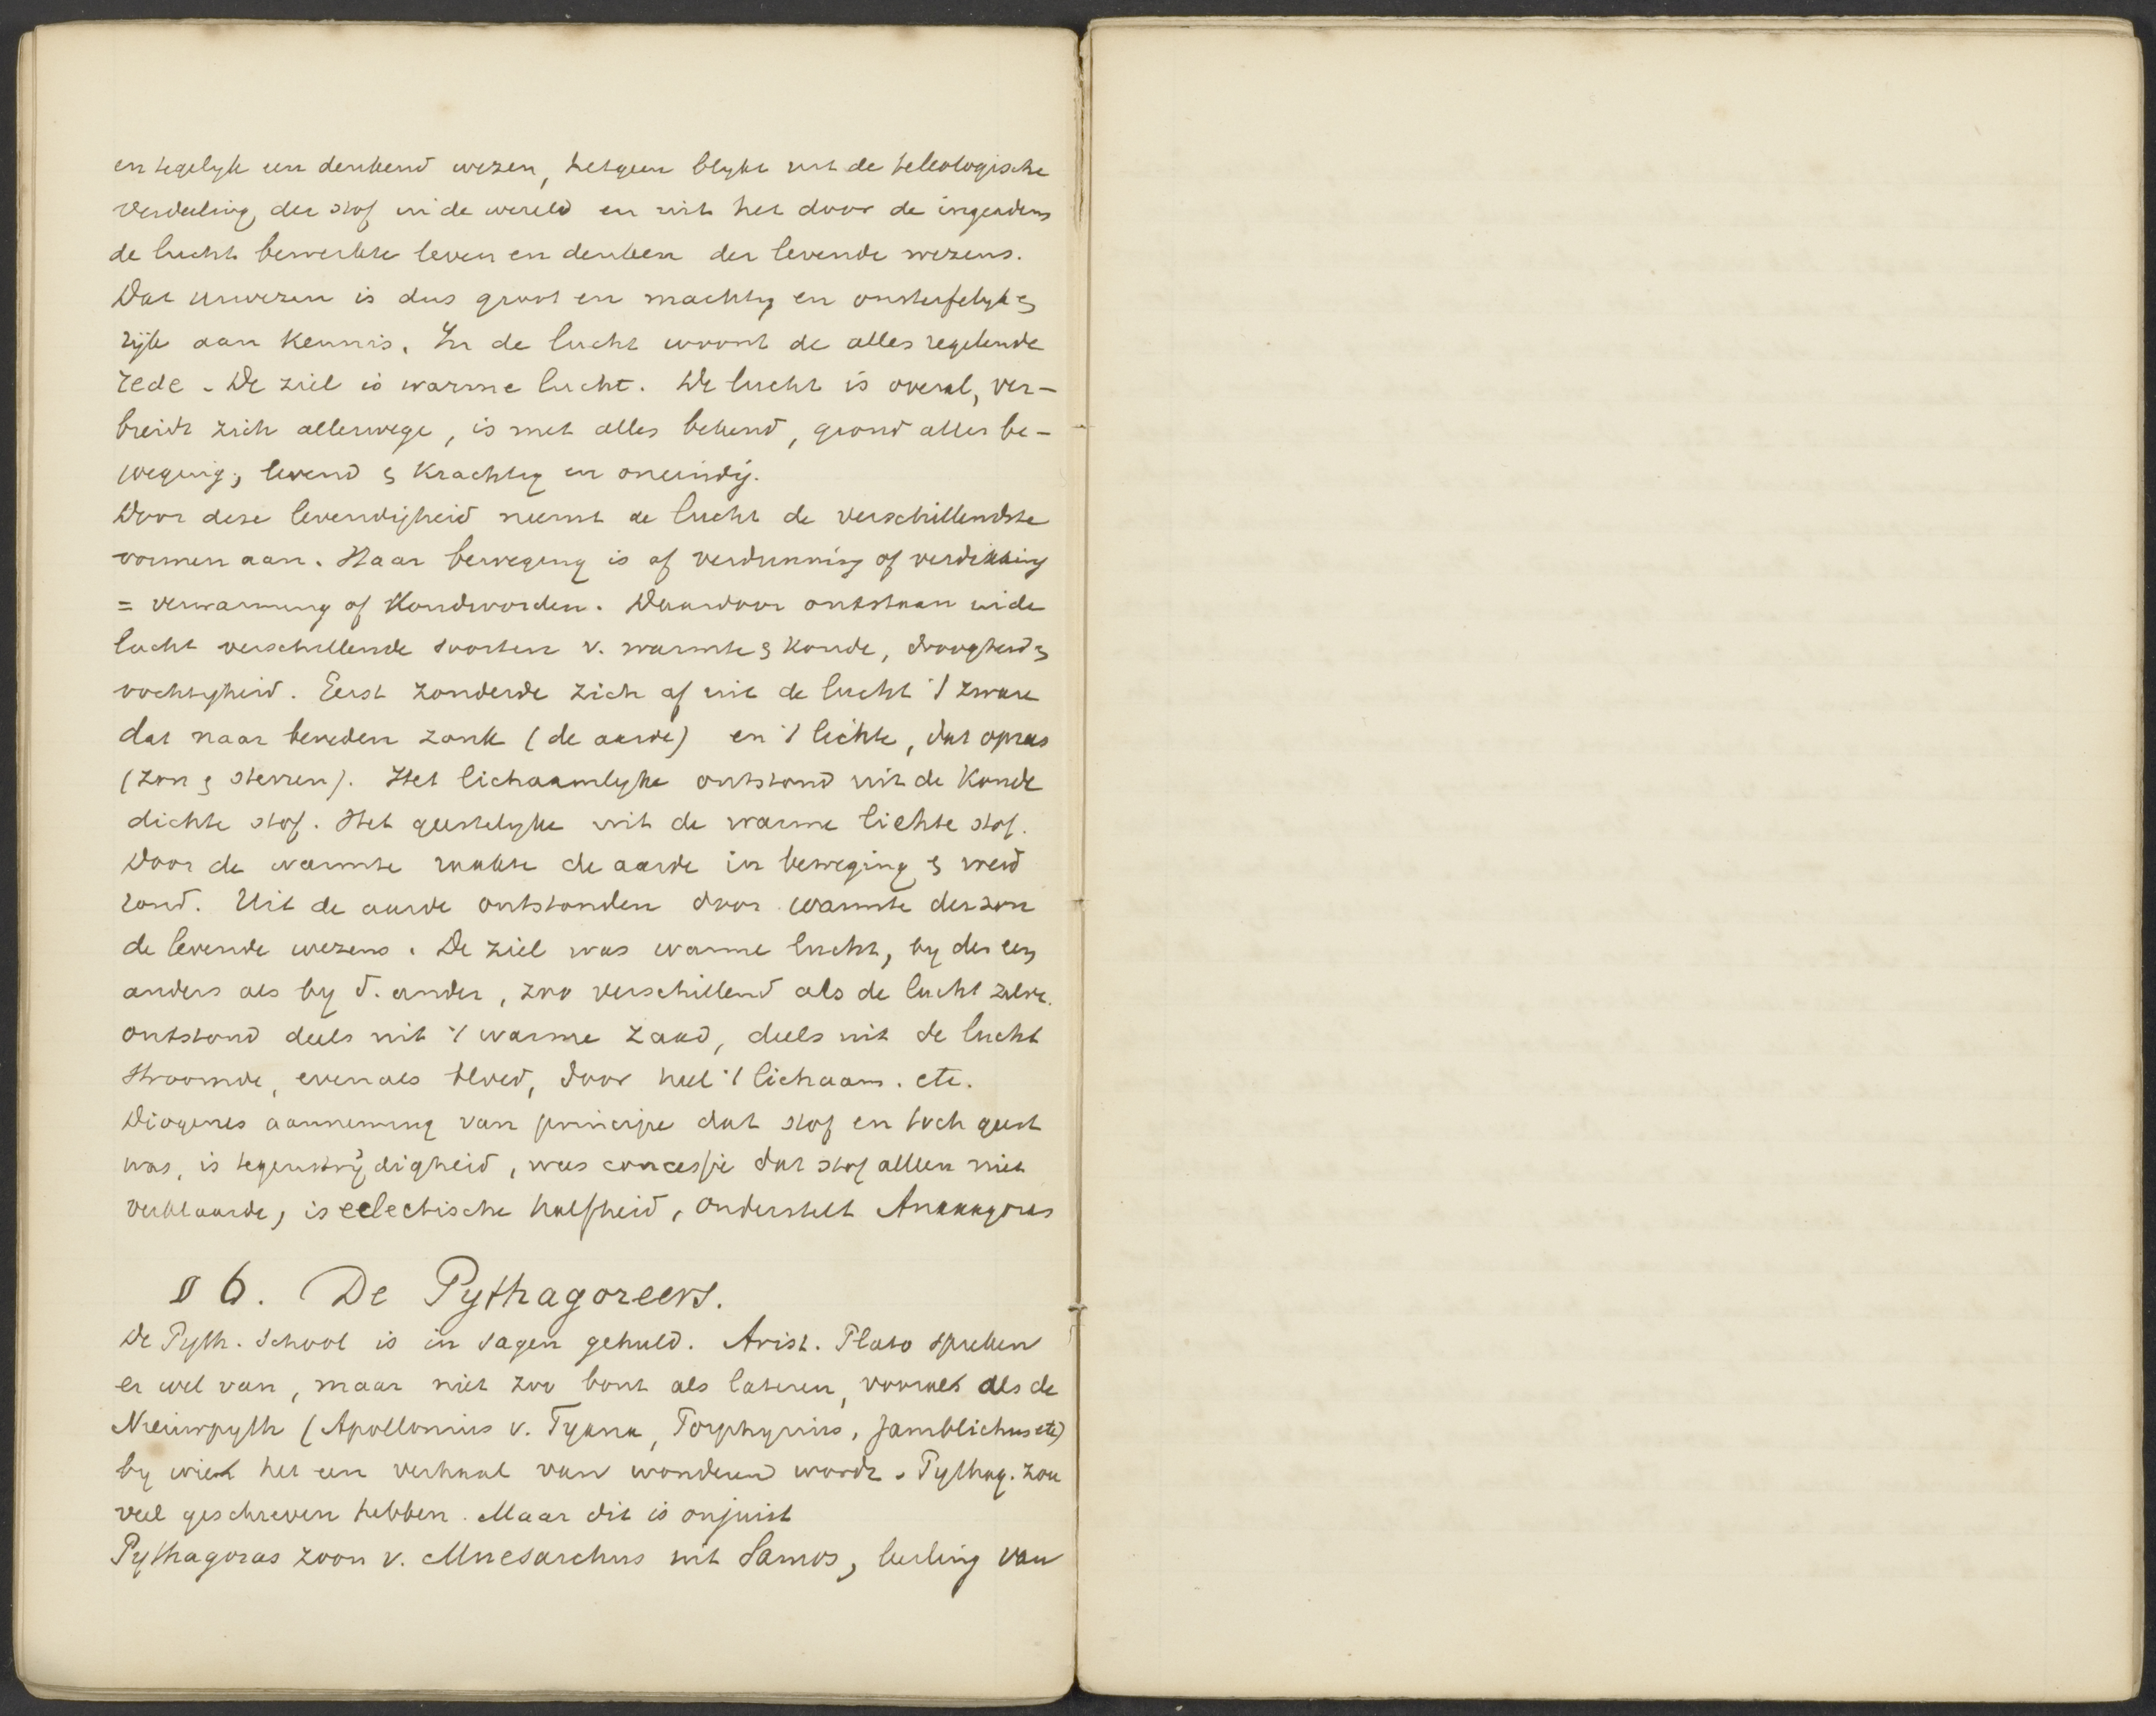 en tegelyk een denkend wezen, hetgeen blykt uit de teleologische
verdeeling der stof in de wereld en uit het door de ingeadem
de lucht bewerkte leven en denken der levende wezens.
Dat urwezen is dus groot en machtig en onsterfelyk &
rijk aan kennis. In de lucht woont de alles regelende
rede. De ziel is warme lucht. De lucht is overal, ver-
breidt zich allerwege, is met alles bekend, grond aller be-
weging, levend & krachtig en oneindig.
Door deze levendigheid neemt de lucht de verschillendste
vormen aan. Haar beweging is of verdunning of verdikking
= verwarming of Koudworden. Daardoor ontstaan in de
lucht verschillende soorten v. warmte & koude, droogheid &
vochtigheid. Eerst zonderde zich af uit de lucht 't zware
dat naar beneden zonk (de aarde) en 't lichte, dat oprees
(zon & sterren). Het lichaamlyke ontstond uit de Koude
dichte stof. Het geestelyke uit de warme lichte stof.
Door de warmte raakte de aarde in beweging & werd
rond. Uit de aarde ontstonden door warmte der zon
de levende wezens. De ziel was warme lucht, by der een
anders als by d. ander, zoo verschillend als de lucht zelve.
ontstond deels uit 't warme zaad, deels uit de lucht
stroomde, evenals bloed, door heel 't lichaam. etc.
Diogenes aanneming van principe dat stof en toch geest
was, is tegenstrijdigheid, was concessie dat stof alleen niet
verklaarde, is eclectische halfheid, onderstelt Anaxagoras
§ 6. De Pythagoreers.
De Pyth. School is in sagen gehuld. Arist. Plato spreken
er wel van, maar niet zoo bont als lateren, vooral als de
Nieuwpyth (Apollonius v. Tyana, Porphyrius, Jamblichus etc)
by wien het een verhaal van wonderen wordt. Pythag. zou
veel geschreven hebben. Maar dit is onjuist
Pythagoras zoon v. Mnesarchus uit Samos, leerling van